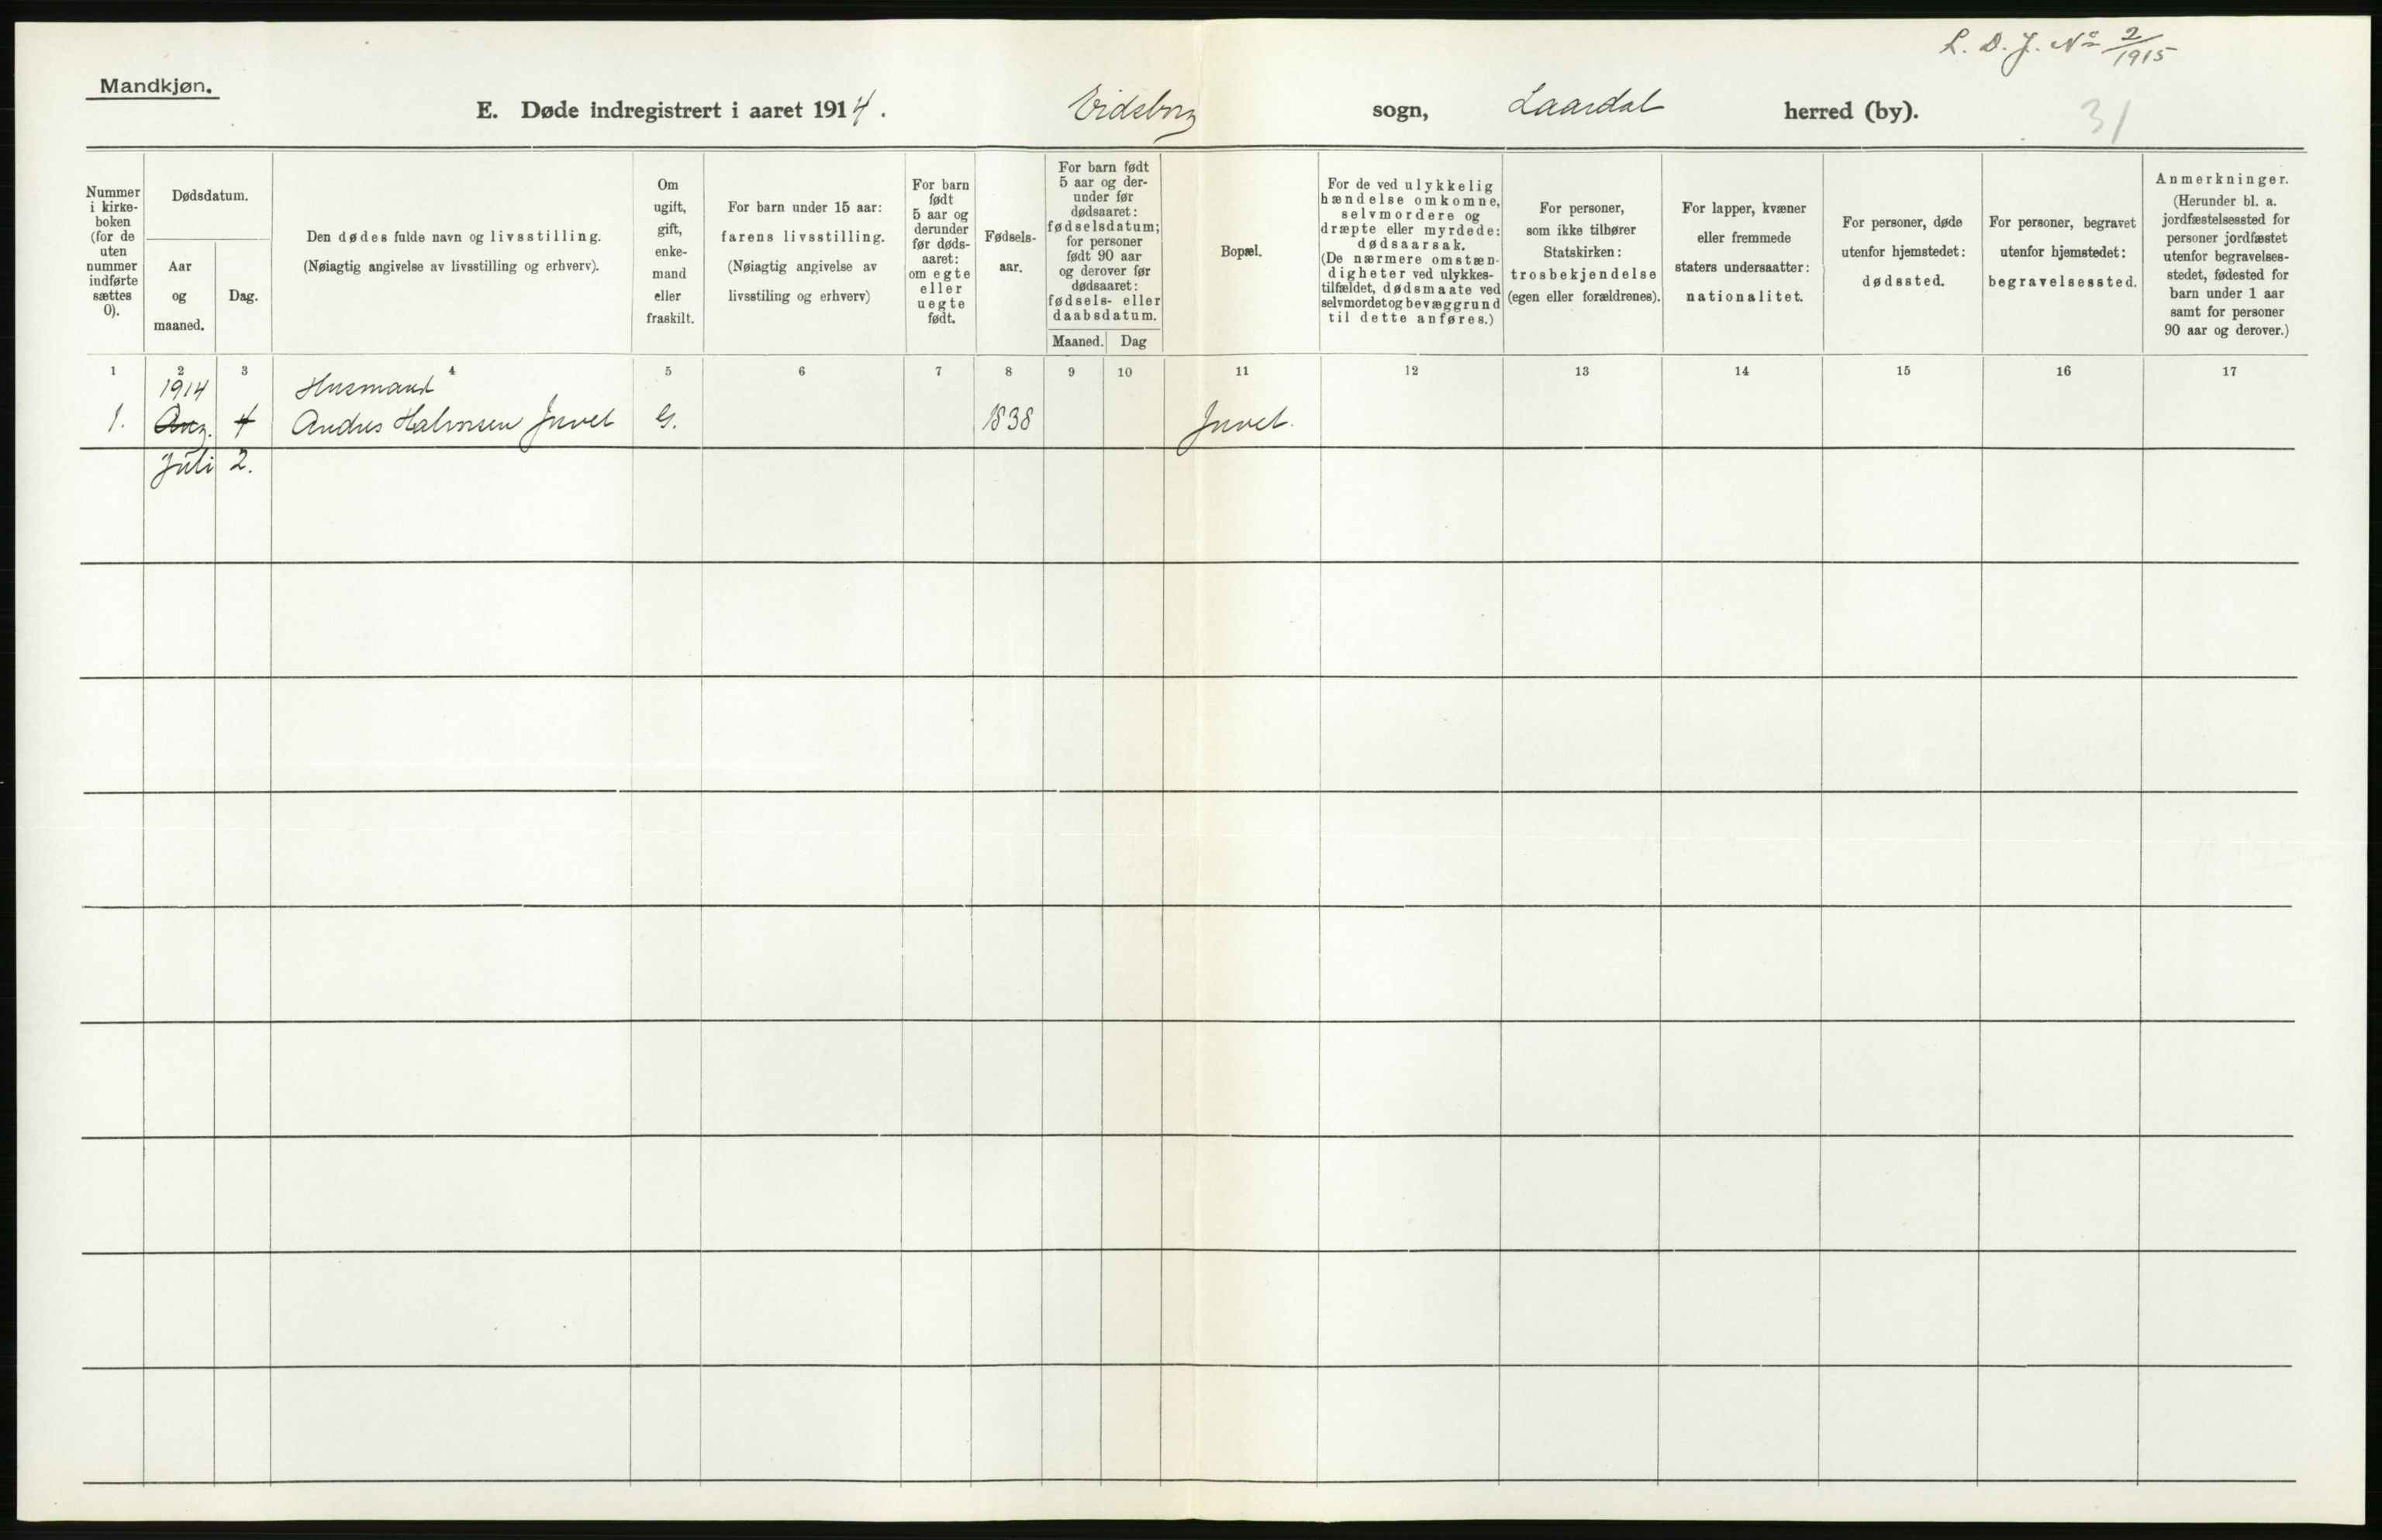 L. D. J. No 2/1915
Mandkjøn.
E. Døde indregistrert i aaret 1914. Eidsborg sogn, Laardal herred (by). 31
Nummer
i kirke-
boken
(for de
uten
nummer
indførte
sættes
0).
Dødsdatum.
Aar
og
maaned.
Dag.
Den dødes fulde navn og livsstilling.
(Nøiagtig angivelse av livsstilling og erhverv).
Om
ugift,
gift,
enke-
mand
eller
fraskilt.
For barn under 15 aar:
farens livsstilling.
(Nøiagtig angivelse av
livsstiling og erhverv)
For barn
født
5 aar og
derunder
før døds-
aaret:
om egte
eller
uegte
født.
Fødsels-
aar.
For barn født
5 aar og der-
under før
dødsaaret:
fødselsdatum;
for personer
født 90 aar
og derover før
dødsaaret:
fødsels- eller
daabsdatum.
Maaned. Dag
Bopæl.
For de ved ulykkelig
hændelse omkomne,
selvmordere og
dræpte eller myrdede:
dødsaarsak.
(De nærmere omstæn-
digheter ved ulykkes-
tilfældet, dødsmaate ved
selvmordet og bevæggrund
til dette anføres.)
For personer,
som ikke tilhører
Statskirken:
trosbekjendelse
(egen eller forældrenes).
For lapper, kvæner
eller fremmede
staters undersaatter:
nationalitet.
For personer, døde
utenfor hjemstedet:
dødssted.
For personer, begravet
utenfor hjemstedet:
begravelsessted.
Anmerkninger.
(Herunder bl. a.
jordfæstelsessted for
personer jordfæstet
utenfor begravelses-
stedet, fødested for
barn under 1 aar
samt for personer
90 aar og derover.)
1 2 3 4 5 6 7 8 9 10 11 12 13 14 15 16 17
1914 Husmand
1. Aug. 4 Andres Halvorsen Juvet G. 1838 Juvet.
Juli 2.